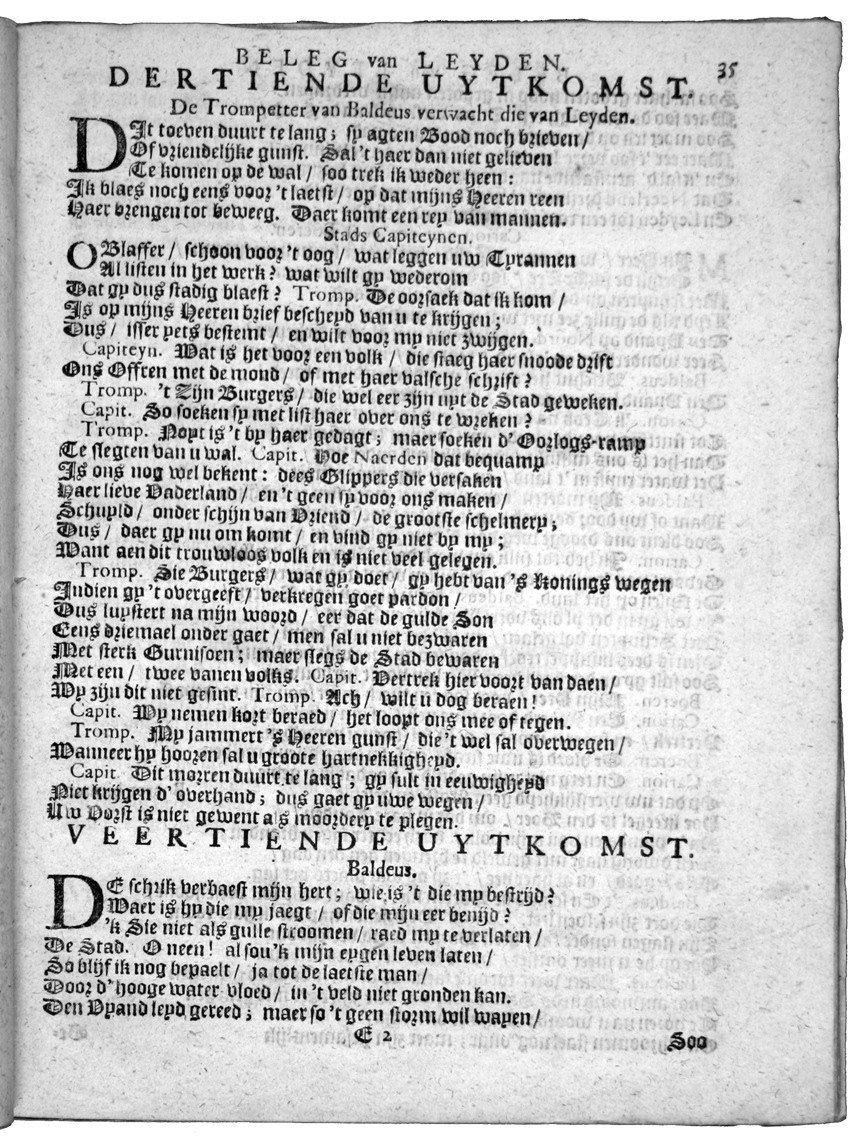 BELEG van LEYDEN. 35
DERTIENDE UYTKOMST.
De Trompetter van Baldeus verwacht die van Leyden.
DIt toeven duurt te lang; sy agten Bood noch brieven/
Of vriendelijke gunst. Sal 't haer dan niet gelieven
Te komen op de wal/ soo trek ik weder heen:
Ik blaes noch eens voor 't laetst/ op dat mijns Heeren reen
Haer brengen tot beweeg. Daer komt een rey van mannen.
Stads Capiteynen.
O Blaffer/ schoon voor 't oog/ wat leggen uw Tyrannen
Al listen in het werk? wat wilt gy wederom
Dat gy dus stadig blaest? Tromp. De oorsaek dat ik kom/
Is op mijns Heeren brief bescheyd van u te krijgen;
Dus/ isser yets bestemt/ en wilt voor my niet zwijgen.
Capiteyn. Wat is het voor een volk/ die staeg haer snoode drift
Ons Offren met de mond/ of met haer valsche schrift?
Tromp. 't Zijn Burgers/ die wel eer zijn uyt de Stad geweken.
Capit. So soeken sy met list haer over ons te wreken?
Tromp. Noyt is 't by haer gedagt; maer soeken d' Oorlogs-ramp
Te slegten van u wal. Capit. Hoe Naerden dat bequamp
Is ons nog wel bekent: dees Glippers die versaken
Haer lieve Vaderland/ en 't geen sy voor ons maken/
Schuyld/ onder schijn van Vriend/ de grootste schelmery;
Dus/ daer gy nu om komt/ en vind gy niet by my;
Want aen dit trouwloos volk en is niet veel gelegen.
Tromp. Sie Burgers/ wat gy doet/ gy hebt van 's Konings wegen
Indien gy 't overgeeft/ verkregen goet pardon/
Dus luystert na mijn woord/ eer dat de gulde Son
Eens driemael onder gaet/ men sal u niet bezwaren
Met sterk Gurnisoen; maer slegs de Stad bewaren
Met een/ twee vanen volks. Capit. Vertrek hier voort van daen/
Wy zijn dit niet gesint. Tromp. Ach/ wilt u dog beraen!
Capit. Wy nemen kort beraed/ het loopt ons mee of tegen.
Tromp. My jammert 's Heeren gunst/ die 't wel sal overwegen/
Wanneer hy hooren sal u groote hartnekkigheyd.
Capit. Dit morren duurt te lang; gy sult in eeuwigheyd
Niet krijgen d' overhand; dus gaet gy uwe wegen/
Uw Vorst is niet gewent als moordery te plegen.
VEERTIENDE UYTKOMST.
Baldeus.
DE schrik verbaest mijn hert; wie is 't die my bestrijd?
Waer is hy die my jaegt/ of die mijn eer benijd?
'k Sie niet als gulle stroomen/ raed my te verlaten/
De Stad. O neen! al sou 'k mijn eygen leven laten/
So blijf ik nog bepaelt/ ja tot de laetste man/
Door d' hooge water vloed/ in 't veld niet gronden kan.
Den Vyand leyd gereed; maer so 't geen storm wil wayen/
E 2 Soo